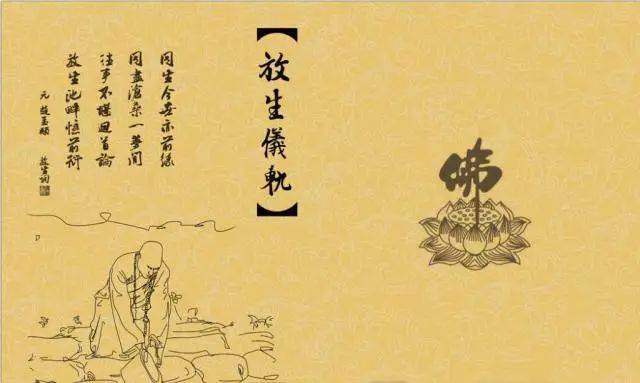 佛
【放生儀軌】
同生今世亦前緣
同盡滄桑一夢間
往事不堪迴首論
放生池畔憶前衍
元 趙孟頫 放生詞